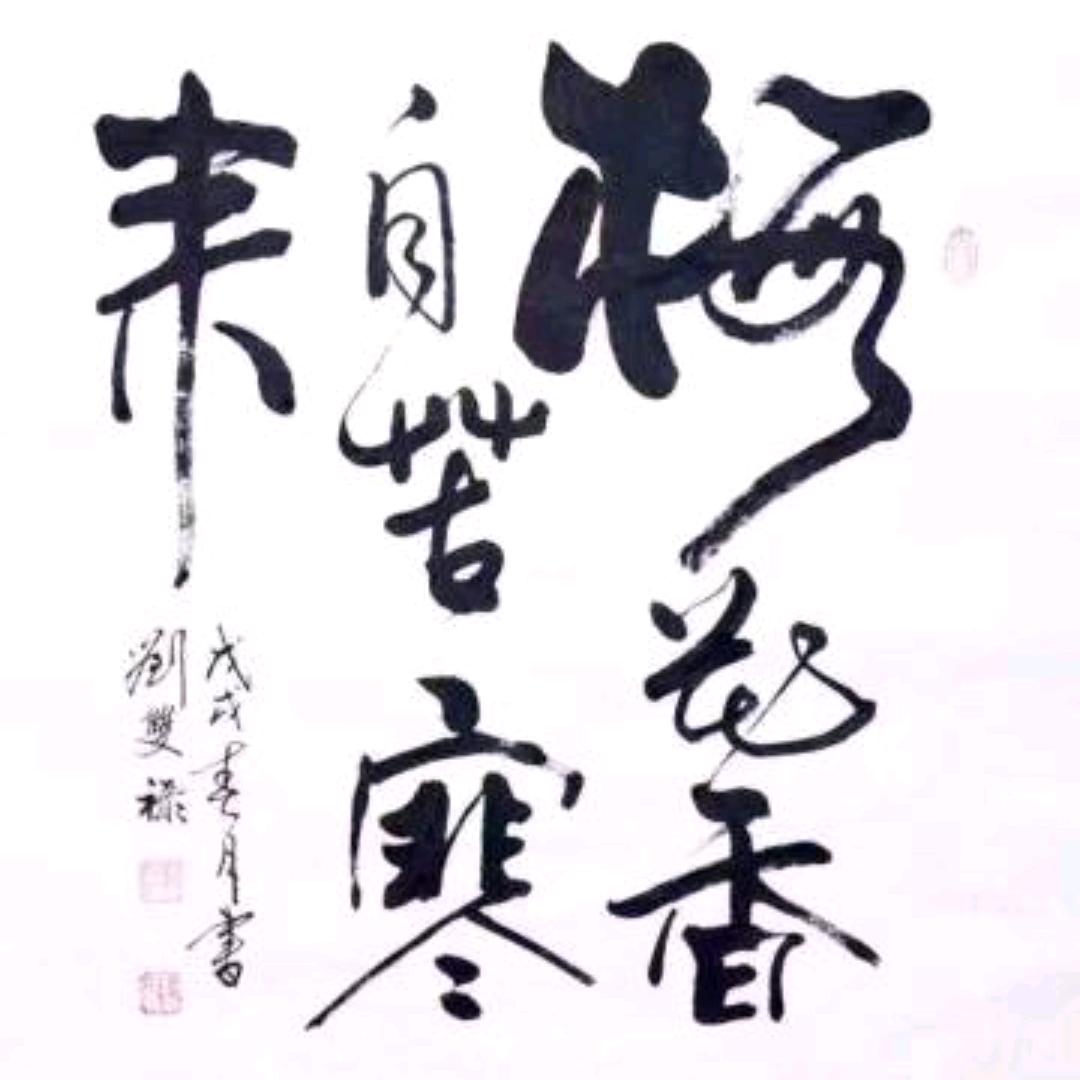 梅花香
自苦寒
来
戊戌春月書
劉雙禄